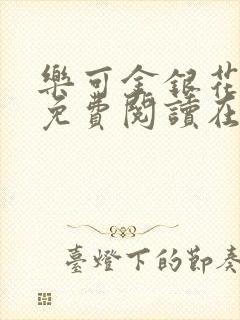 樂可金銀花
免費閱讀在
臺燈下的節奏